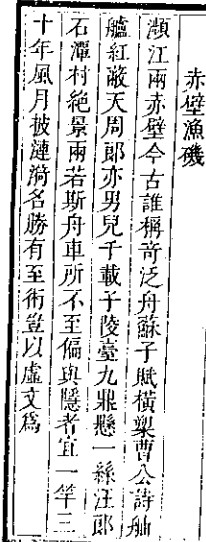 赤壁漁磯
瀕江兩赤壁今古誰稱奇泛舟蘇子賦橫槊曹公詩舳
艫紅蔽天周郎亦男兒千載子陵臺九鼎懸一絲汪郎
石潭村絶景兩若斯舟車所不至偏與隱者宜一竿三
十年風月披漣漪名勝有至術豈以虛文爲